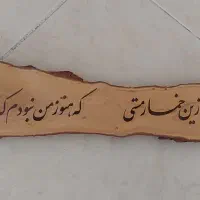 ازین خمار مستی که هنوز من نبودم